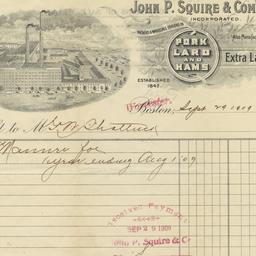 JOHN P. SQUIRE & COM
INCORPORATED.
PORK
LARD
AND
HAMS
Extra La
ESTABLISHED
1842.
Boston, Sept 29 1909
to Mr
Manure for
year ending Aug 1 '09
Received Payment
SEP 29 1909
John P. Squire & Co